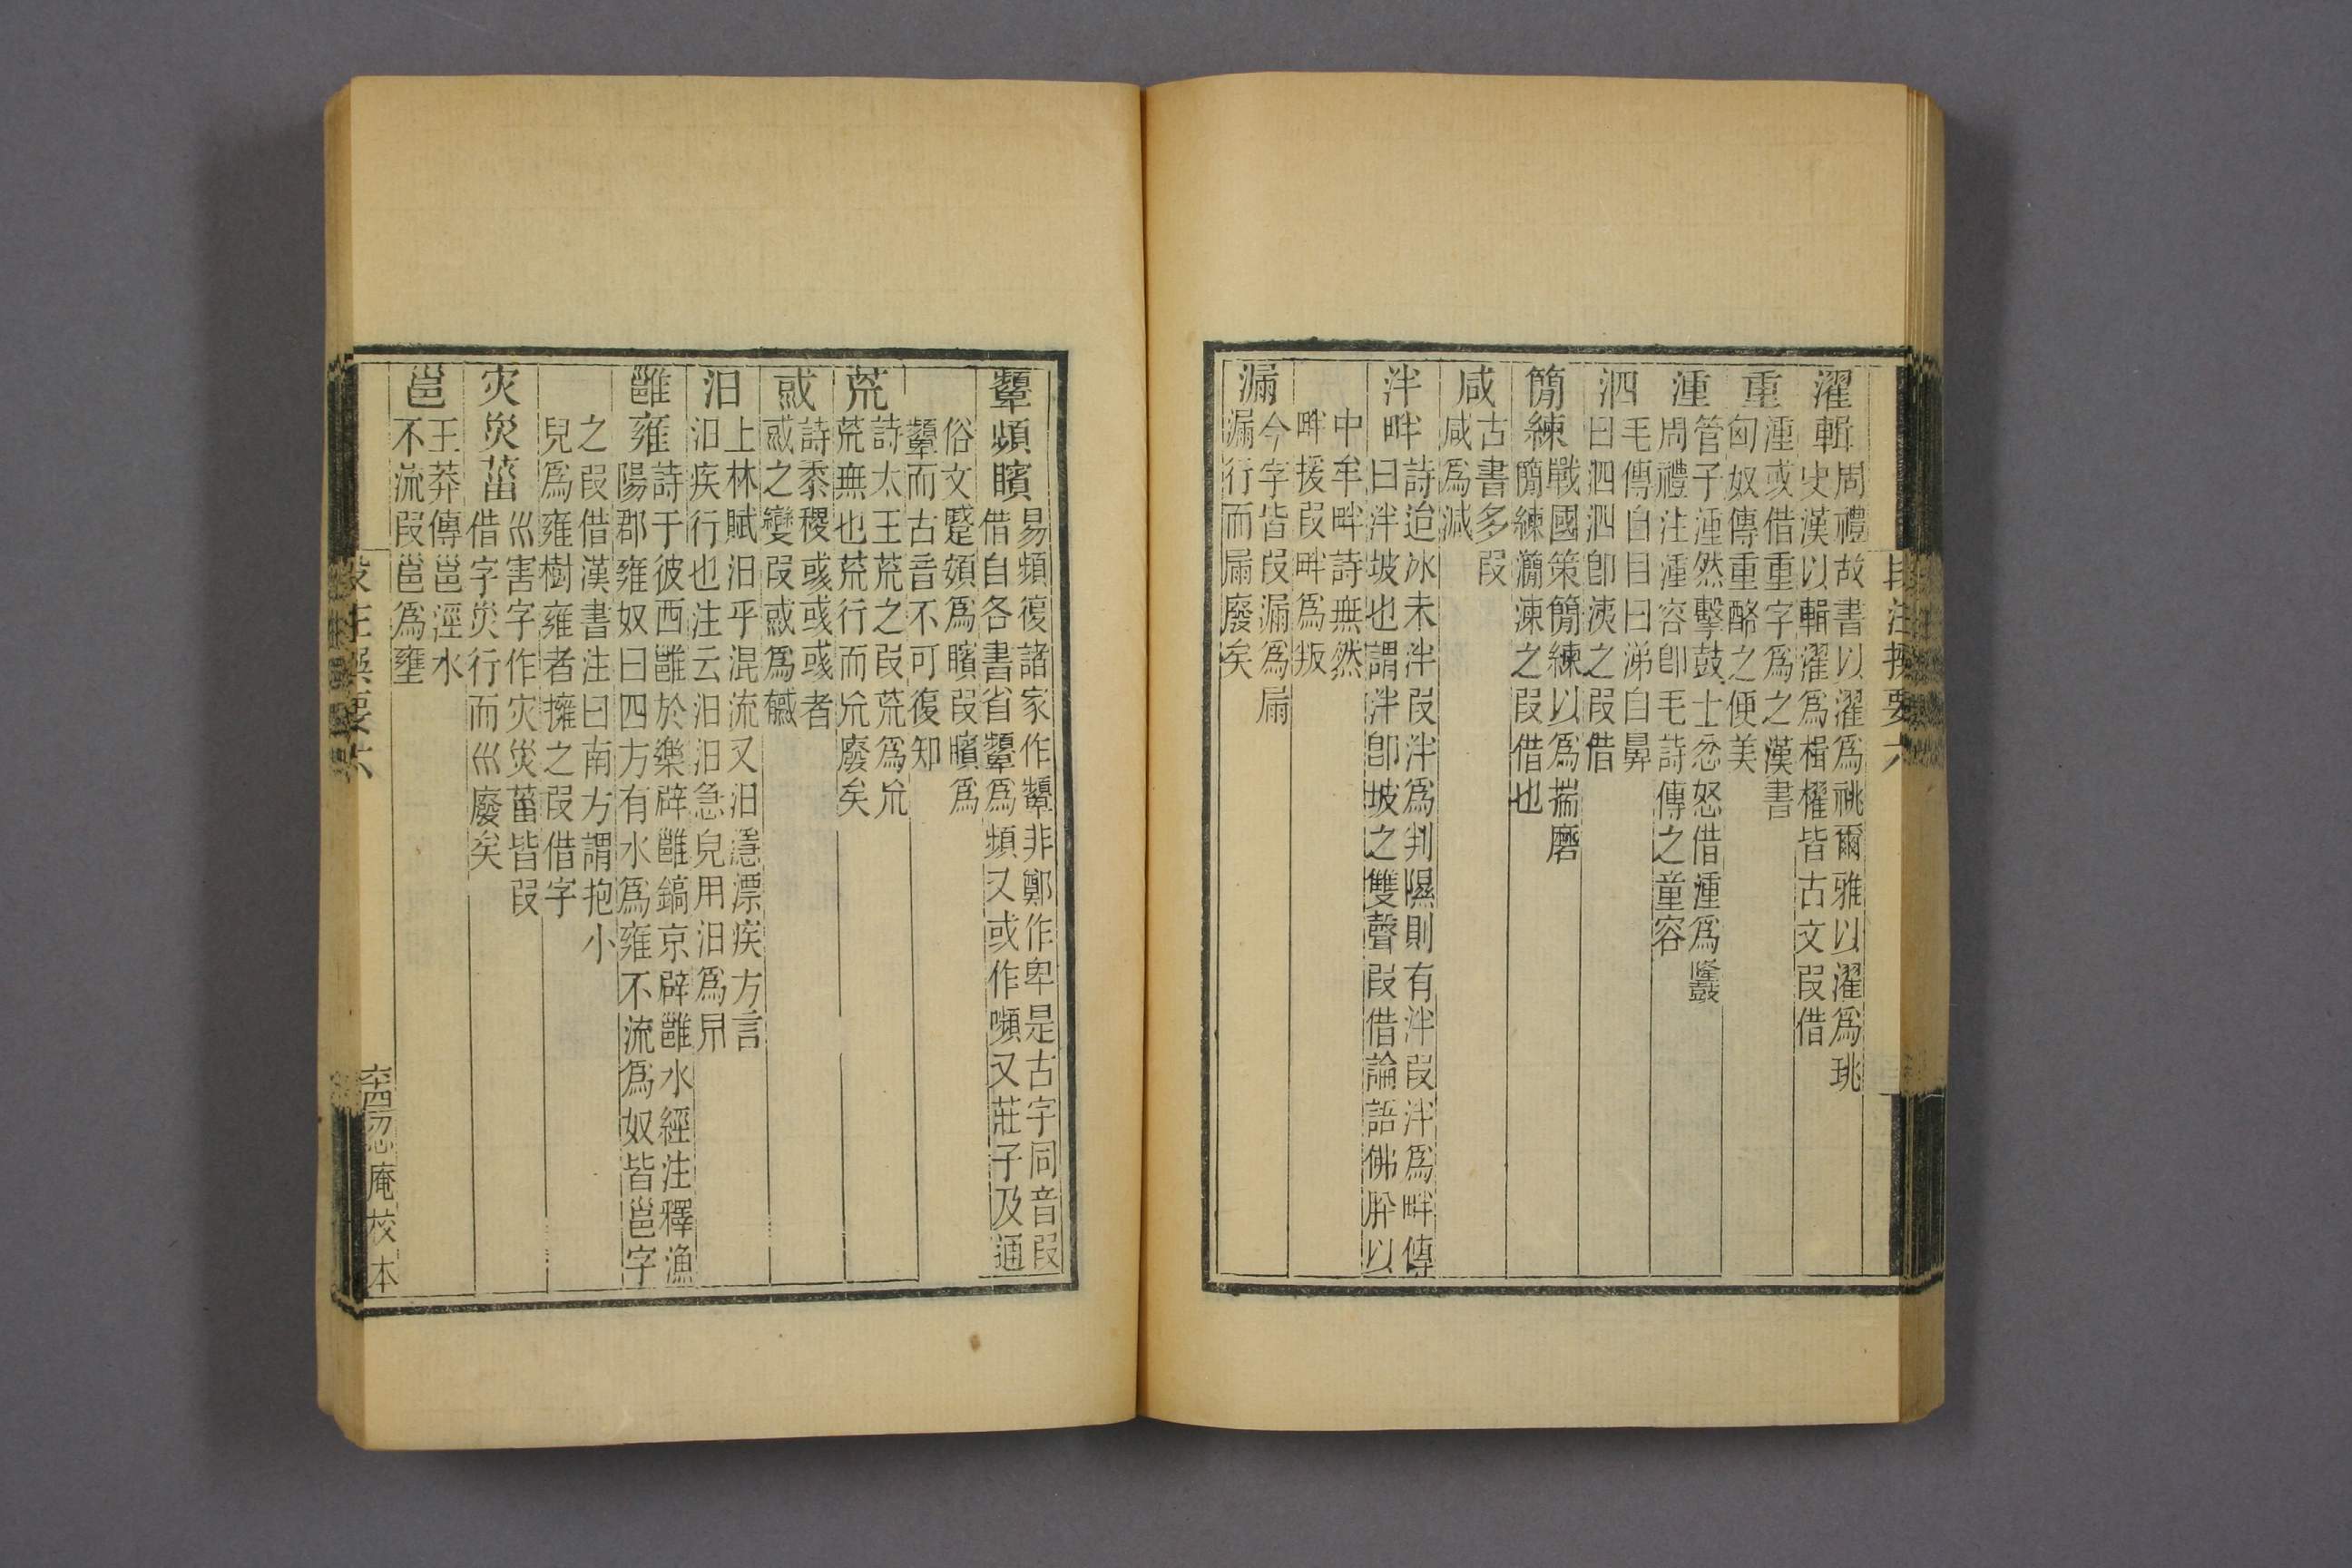 濯輯周禮故書以濯爲祧爾雅以濯爲珧
史漢以輯濯爲楫櫂皆古文叚借
重湩或借重字爲之漢書
匈奴傳重酪之便美
湩管子湩然擊鼓士忿怒借湩爲鼞
周禮注湩容卽毛詩傳之童容
泗毛傳自目曰涕自鼻
曰泗泗卽洟之叚借
簡練戰國策簡練以爲揣磨
簡練灡湅之叚借也
咸古書多叚
咸爲減
泮畔詩迨冰未泮叚泮爲判隰則有泮叚泮爲畔傳
曰泮坡也謂泮卽坡之雙聲叚借論語佛肸以
中牟畔詩無然
畔援叚畔爲叛
漏今字皆叚漏爲屚
漏行而屚廢矣
段注撰要六
顰頻矉易頻復諸家作顰非鄭作卑是古字同音叚
借自各書省顰爲頻又或作嚬又莊子及通
俗文蹙頞爲矉叚矉爲
顰而古音不可復知
荒詩太王荒之叚荒爲㠩
荒蕪也荒行而㠩廢矣
惑詩黍稷彧彧彧者
惑之變叚惑爲䤋
汩上林賦汩乎混流又汩濦漂疾方言
汩疾行也注云汩汩急皃用汩爲㫕
雝雍詩于彼西雝於樂辟雝鎬京辟雝水經注釋漁
陽郡雍奴曰四方有水爲雍不流爲奴皆邕字
之叚借漢書注曰南方謂抱小
兒爲雍樹雍者擁之叚借字
灾災菑巛害字作灾災菑皆叚
借字災行而巛廢矣
邕王莽傳邕涇水
不流叚邕爲壅
段注撰要六
忍庵校本